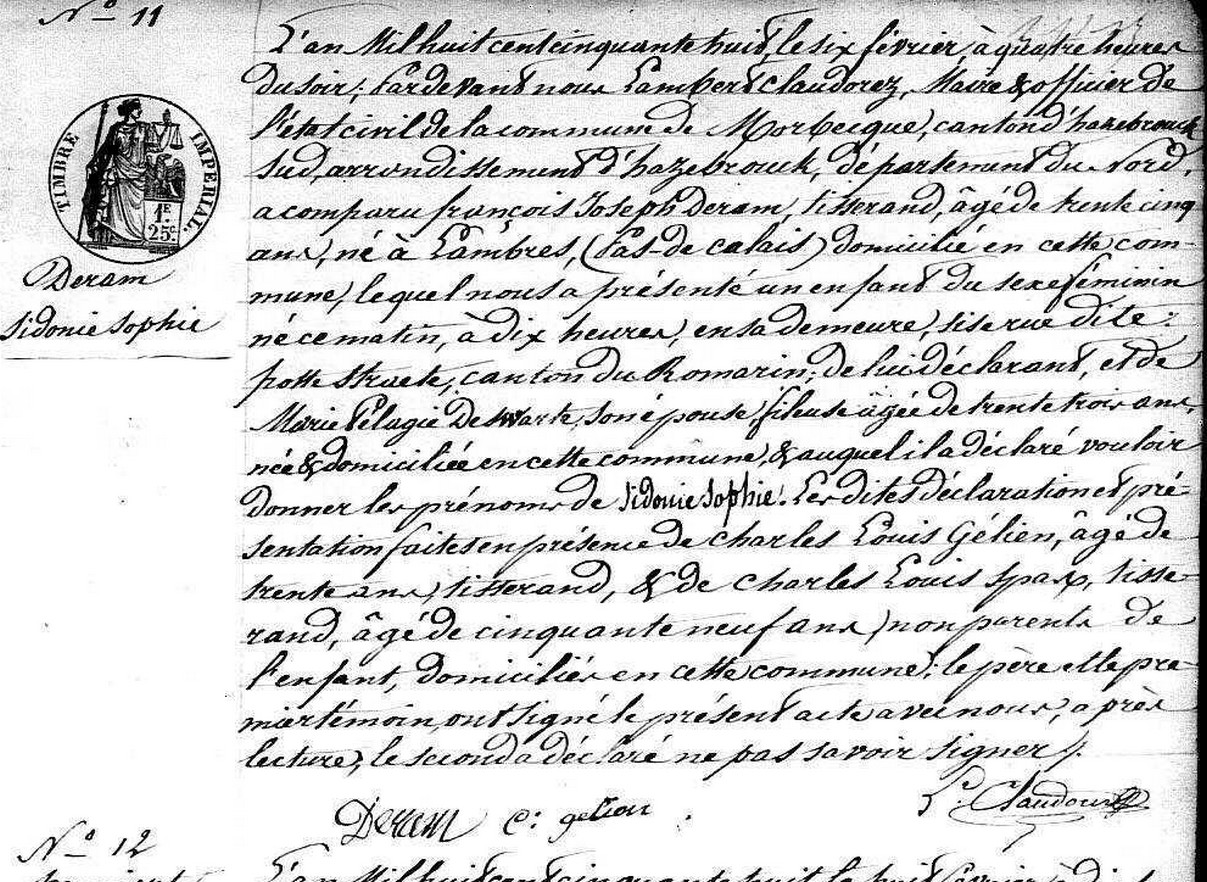 Nº 11
L'an Mil huit cent cinquante huit, le six février, à quatre heures
Du soir; Pardevant nous Lambert Claudorez, Maire & officier de
l'état civil de la commune de Morbecque, canton d'hazebrouck
Sud, arrondissement d'hazebrouck, département du Nord,
a comparu françois Joseph Deram, tisserand, âgé de trente cinq
ans, né à Lambres, (Pas-de-calais) domicilié en cette com-
mune, lequel nous a présenté un enfant du sexe féminin
né ce matin, à dix heures, en sa demeure, sise rue dite:
potte Straete, canton du Romarin; de lui déclarant, et de
Marie Pélagie Deswarte, son épouse, fileuse âgée de trente trois ans,
née & domiciliée en cette commune, & auquel il a déclaré vouloir
donner les prénoms de Sidonie Sophie. Les dites déclaration et pré-
sentation faites en présence de Charles Louis Gélien, âgé de
trente ans, tisserand, & de Charles Louis Spax, tisse-
rand, âgé de cinquante neuf ans, non parents de
l'enfant, domiciliés en cette commune; le père et le pre-
mier témoin, ont signé le présent acte avec nous, après
lecture, le second a déclaré ne pas savoir signer.
TIMBRE IMPERIAL
1F
25c
Deram
Sidonie Sophie
Deram C: gelien
L. Claudorez
Nº 12
L'an Mil huit cent cinquante huit le huit février à dix